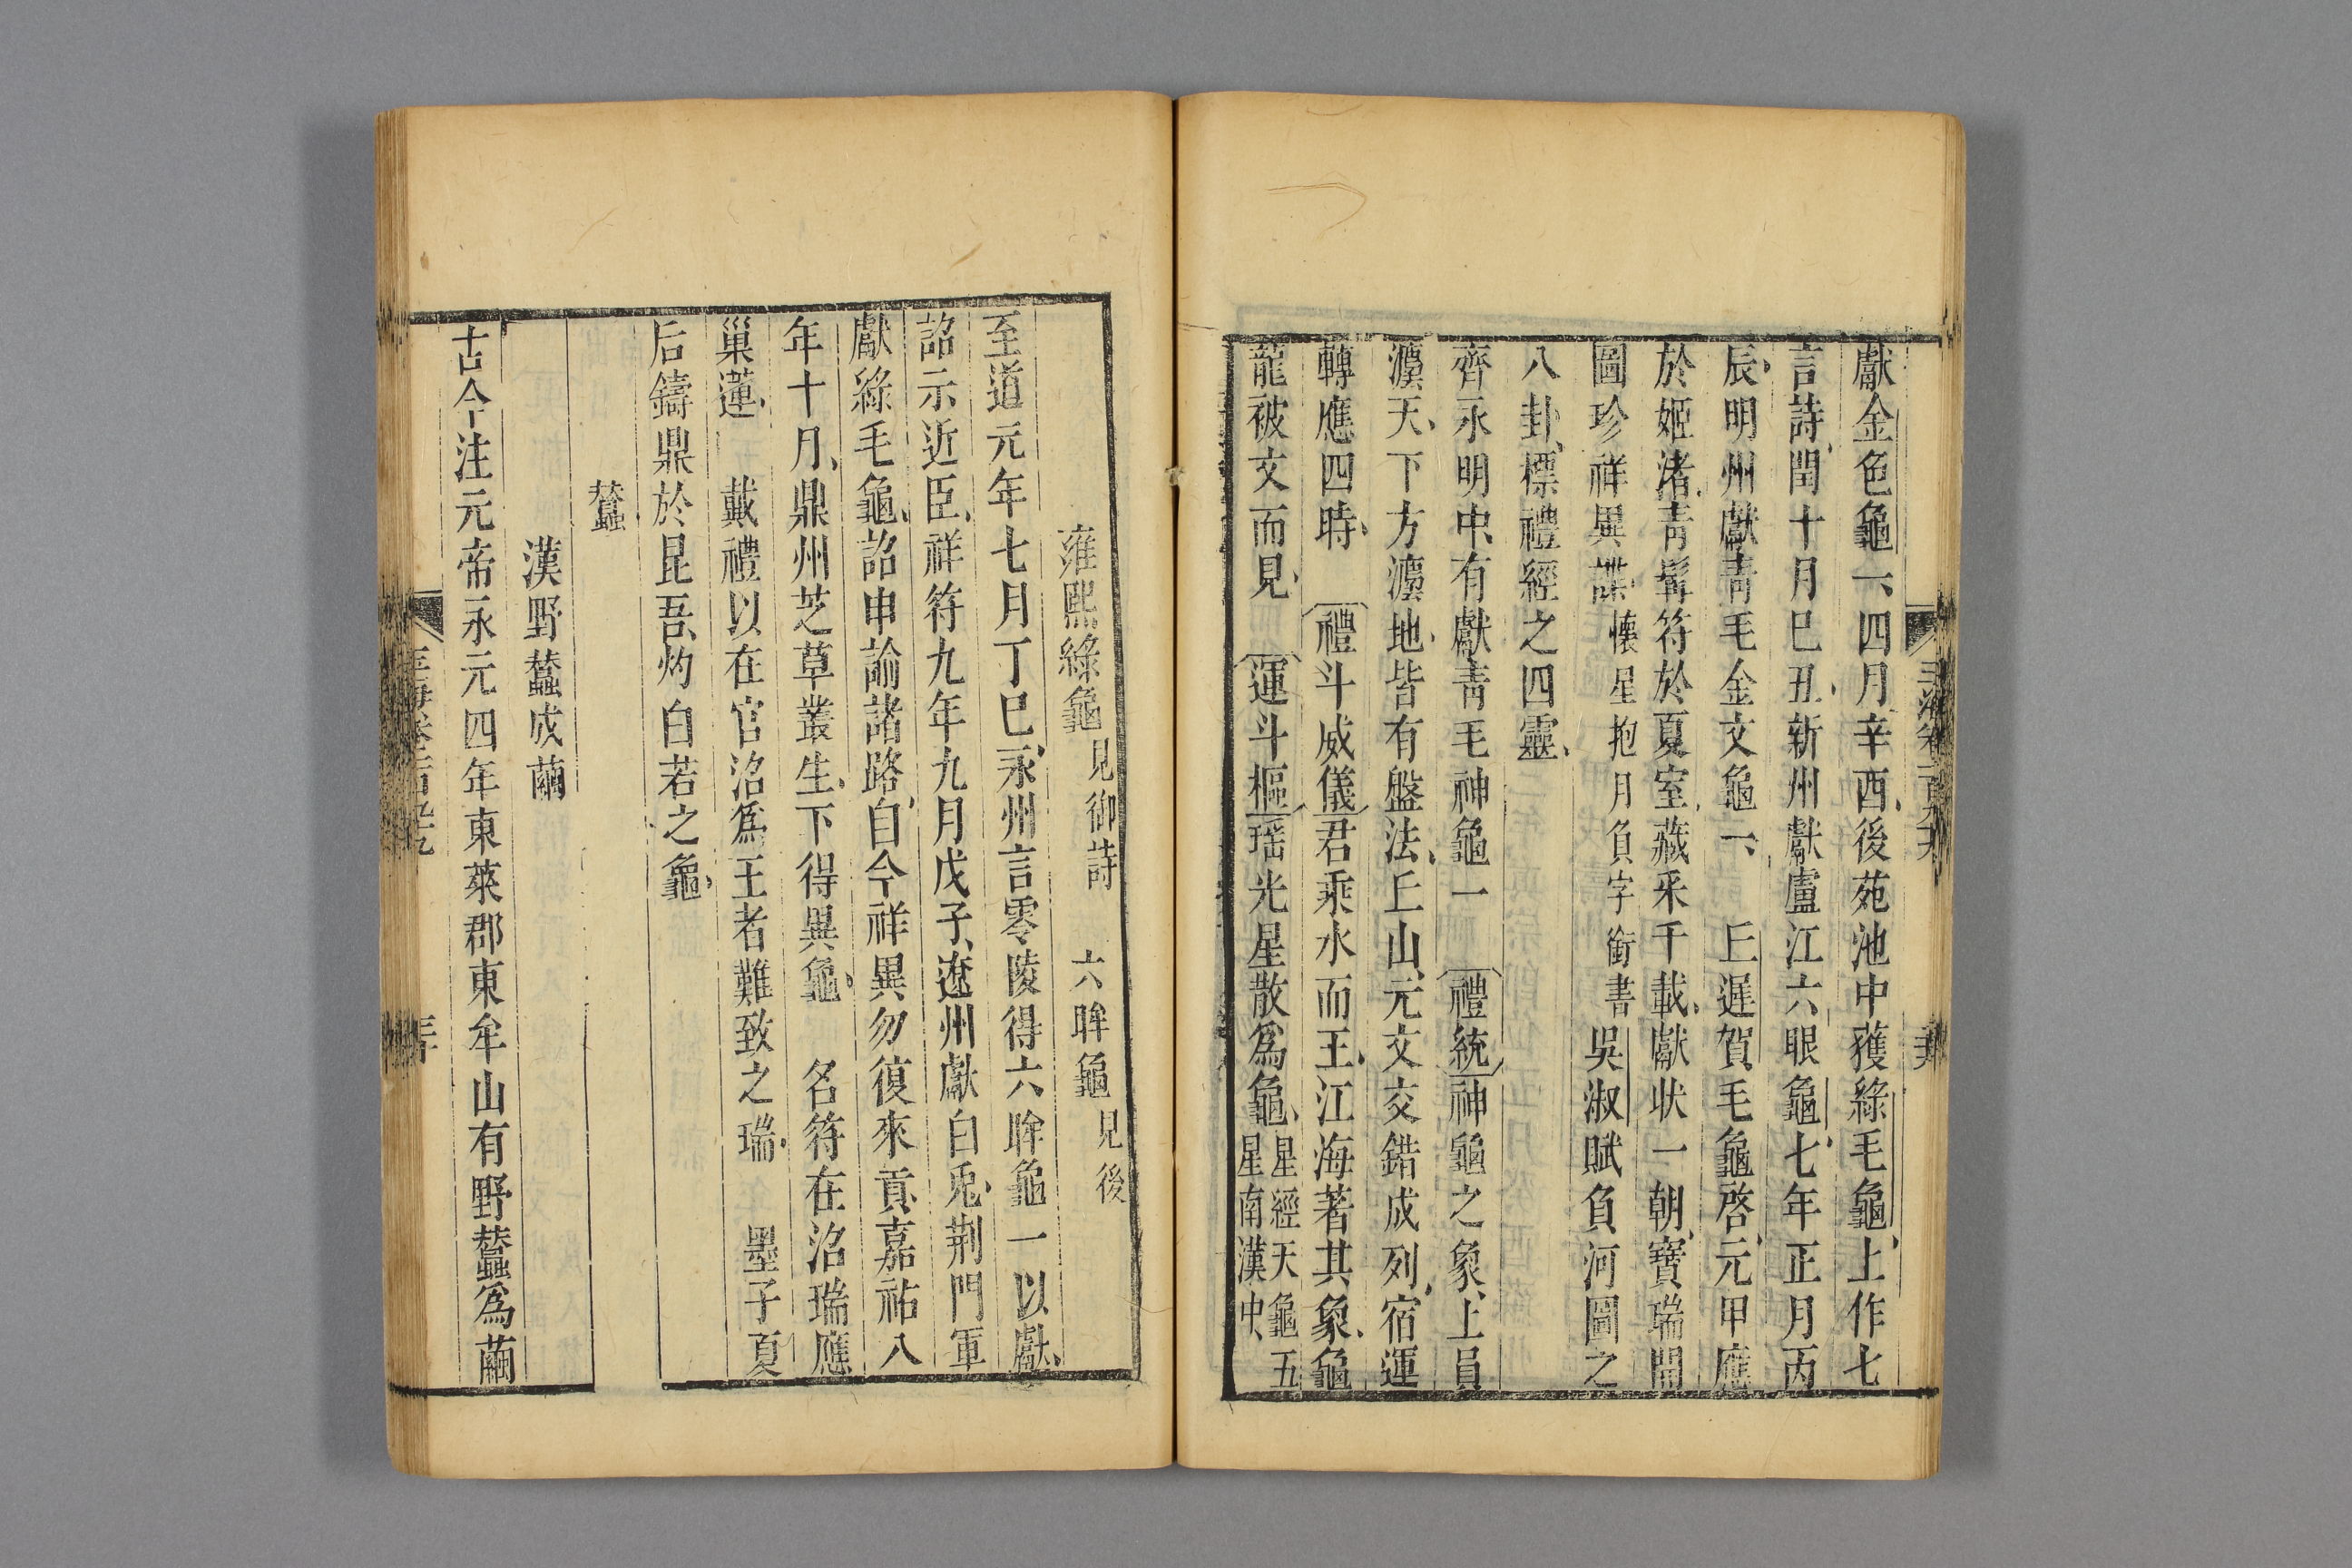 獻金色龜一四月辛酉後苑池中獲綠毛龜上作七
言詩閏十月巳丑新州獻盧江六眼龜七年正月丙
辰明州獻靑毛金文龜一丘遲賀毛龜啓元甲應
於姬渚靑髯符於夏室藏采千載獻狀一朝寶瑞開
圖珍祥異諜懷星抱月負字銜書吳淑賦負河圖之
八卦標禮經之四靈
齊永明中有獻靑毛神龜一禮統神龜之象上員
灋天下方灋地皆有盤法丘山元文交錯成列宿運
轉應四時禮斗威儀君乘水而王江海著其象龜
龍被文而見運斗樞瑶光星散爲龜星經天龜五
星南漢中
雍熙綠龜見御詩六眸龜見後
至道元年七月丁巳永州言零陵得六眸龜一以獻
詔示近臣祥符九年九月戊子遼州獻白兎荆門軍
獻綠毛龜詔申諭諸路自今祥異勿復來貢嘉祐八
年十月鼎州芝草叢生下得異龜名符在沼瑞應
巢蓮戴禮以在官沼爲王者難致之瑞墨子夏
后鑄鼎於昆吾灼白若之龜
蠶
漢野蠶成繭
古今注元帝永元四年東萊郡東牟山有野蠶爲繭